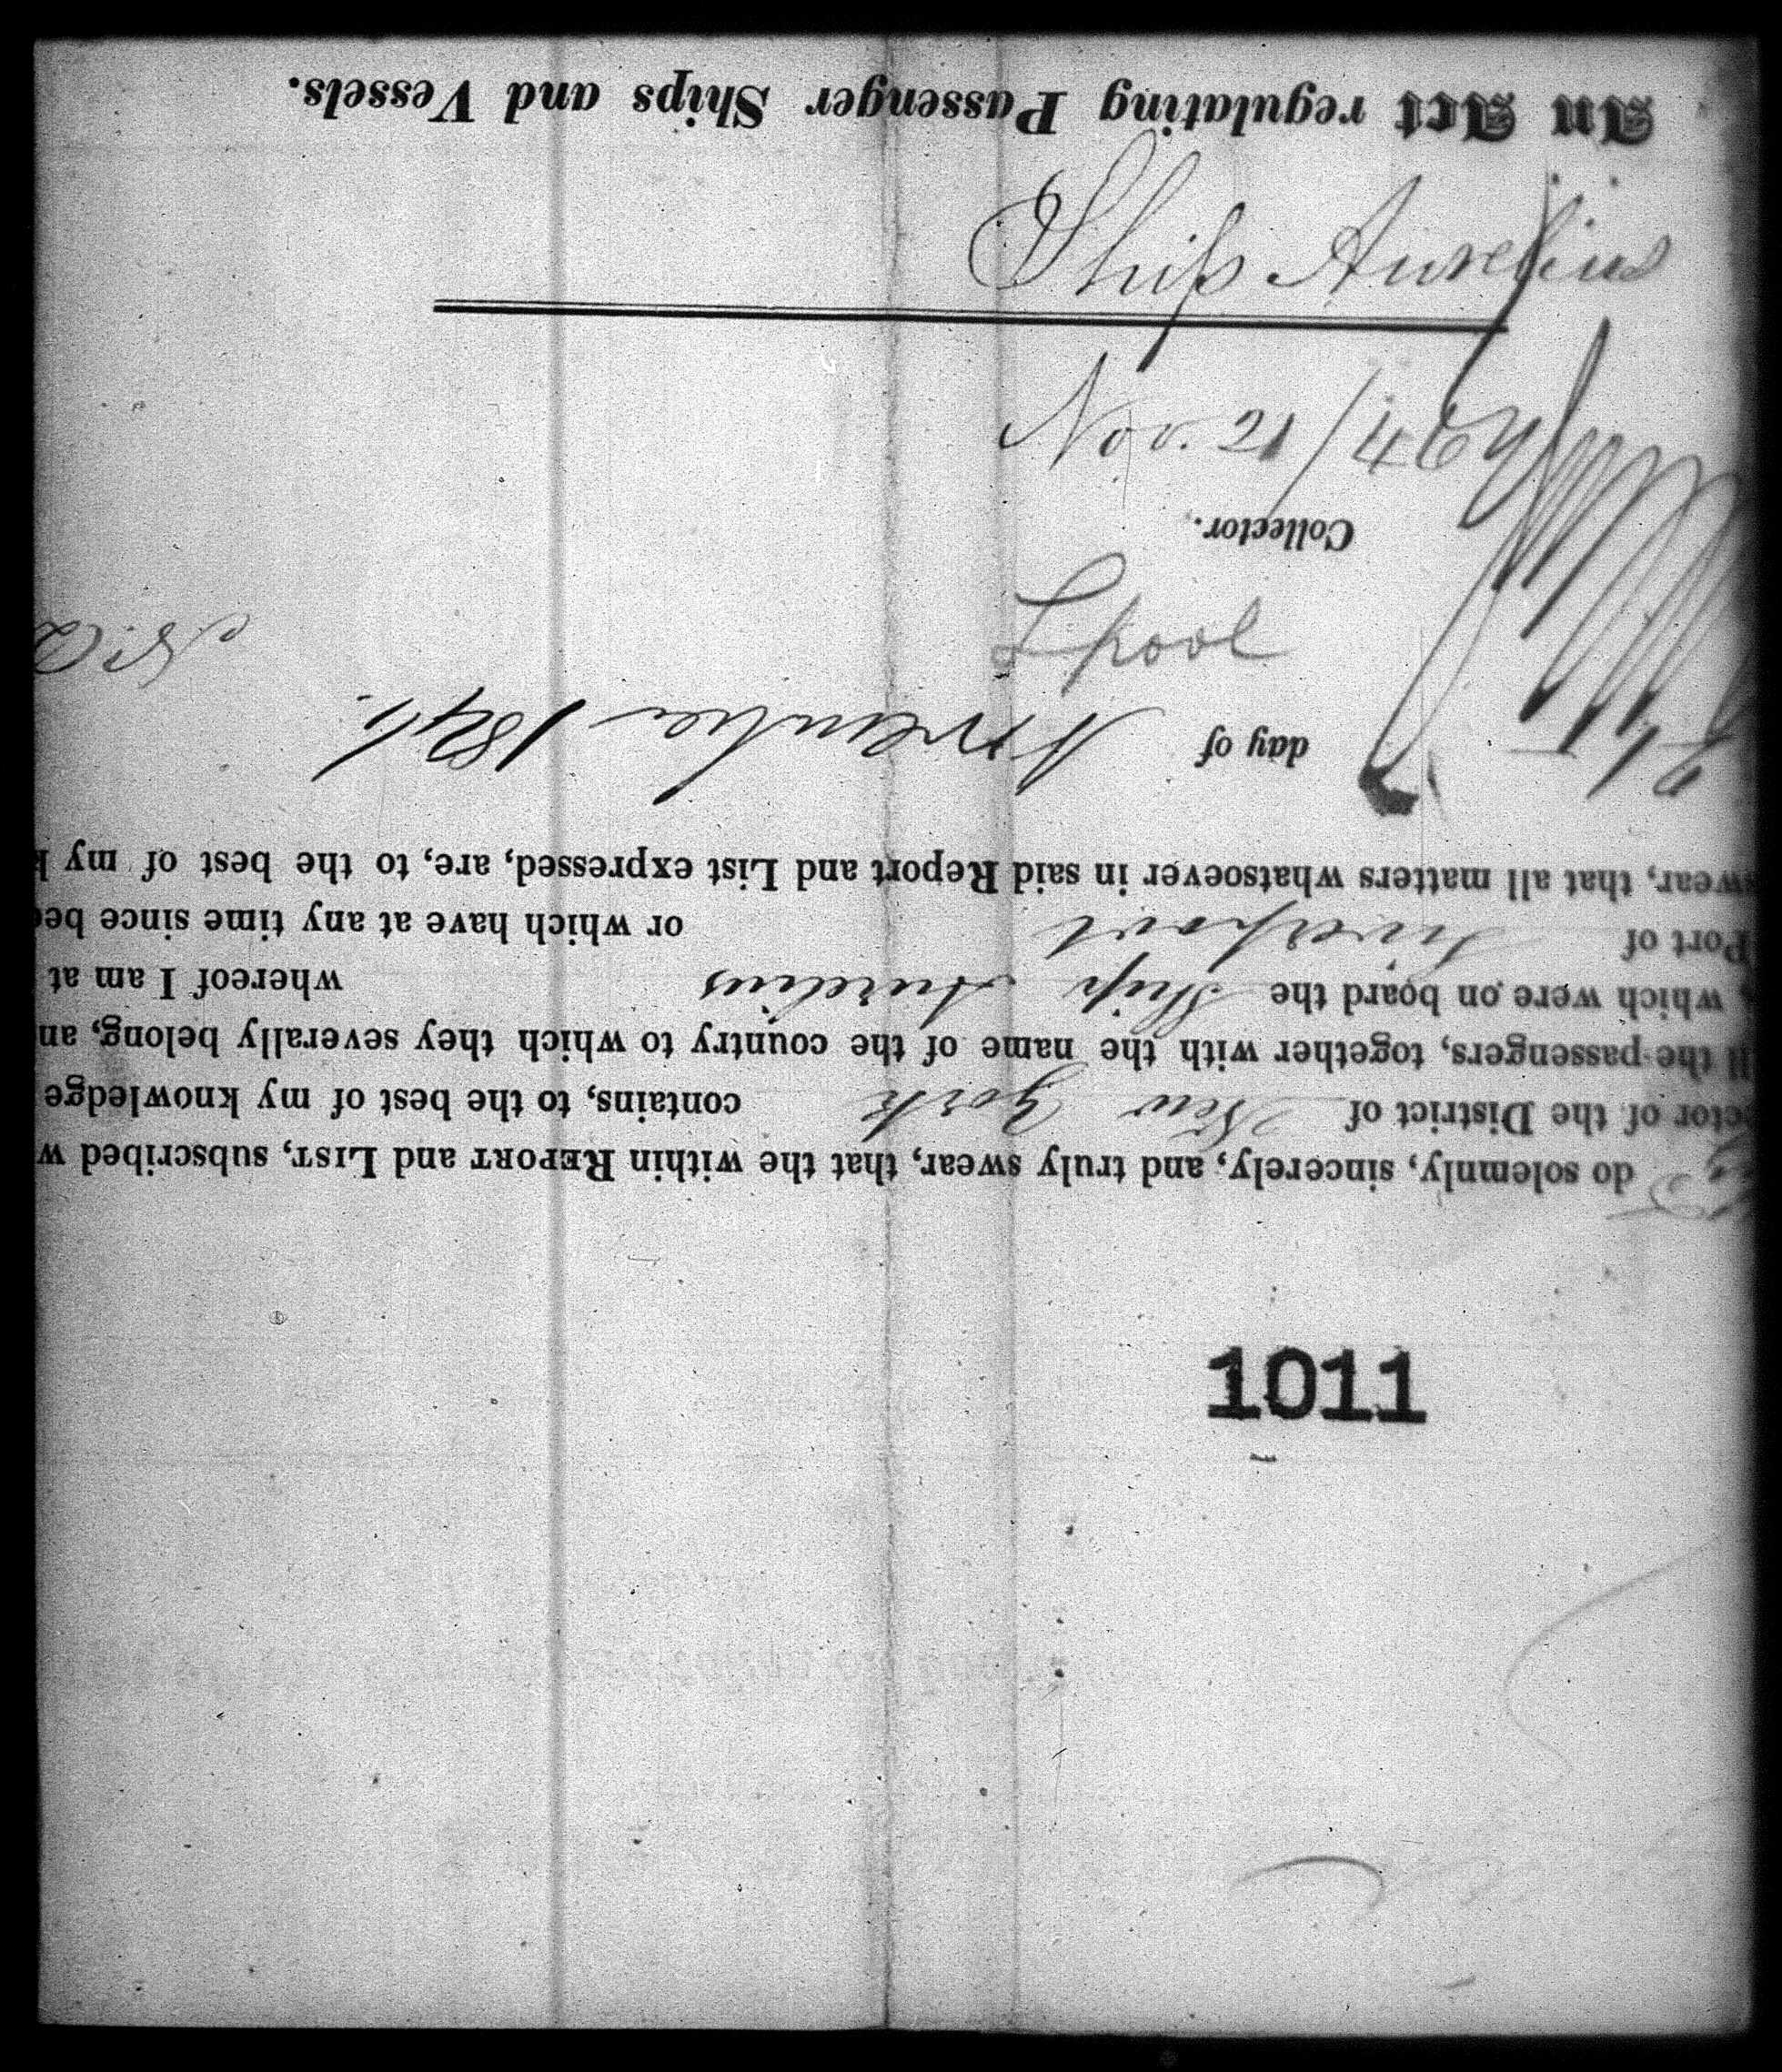 1011
do solemnly, sincerely, and truly swear, that the within REPORT and LIST, subscribed w
ctor of the District of New York contains, to the best of my knowledge
ll the passengers, together with the name of the country to which they severally belong, an
which were on board the Ship Aurelius whereof I am at
Port of Liverpool or which have at any time since bee
swear, that all matters whatsoever in said Report and List expressed, are, to the best of my k
day of November 1846.
Collector.
An Act regulating Passenger Ships and Vessels.
Ship Aurelius
Nov. 12/46
Lpool